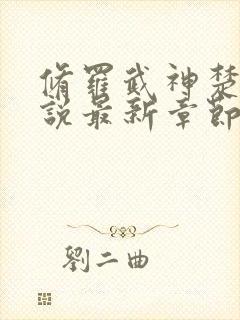 脩羅武神楚
說最新章節
劉二曲